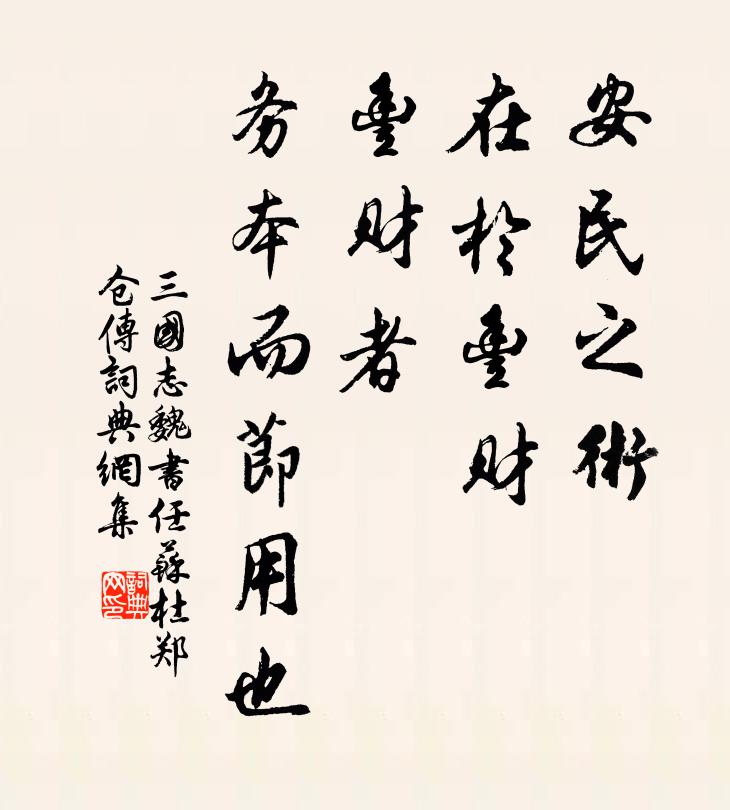 安民之術
在於豊財
豊財者
务本而節用也
三國志魏書任蘇杜郑
仓傳詞典網集
詞典网印